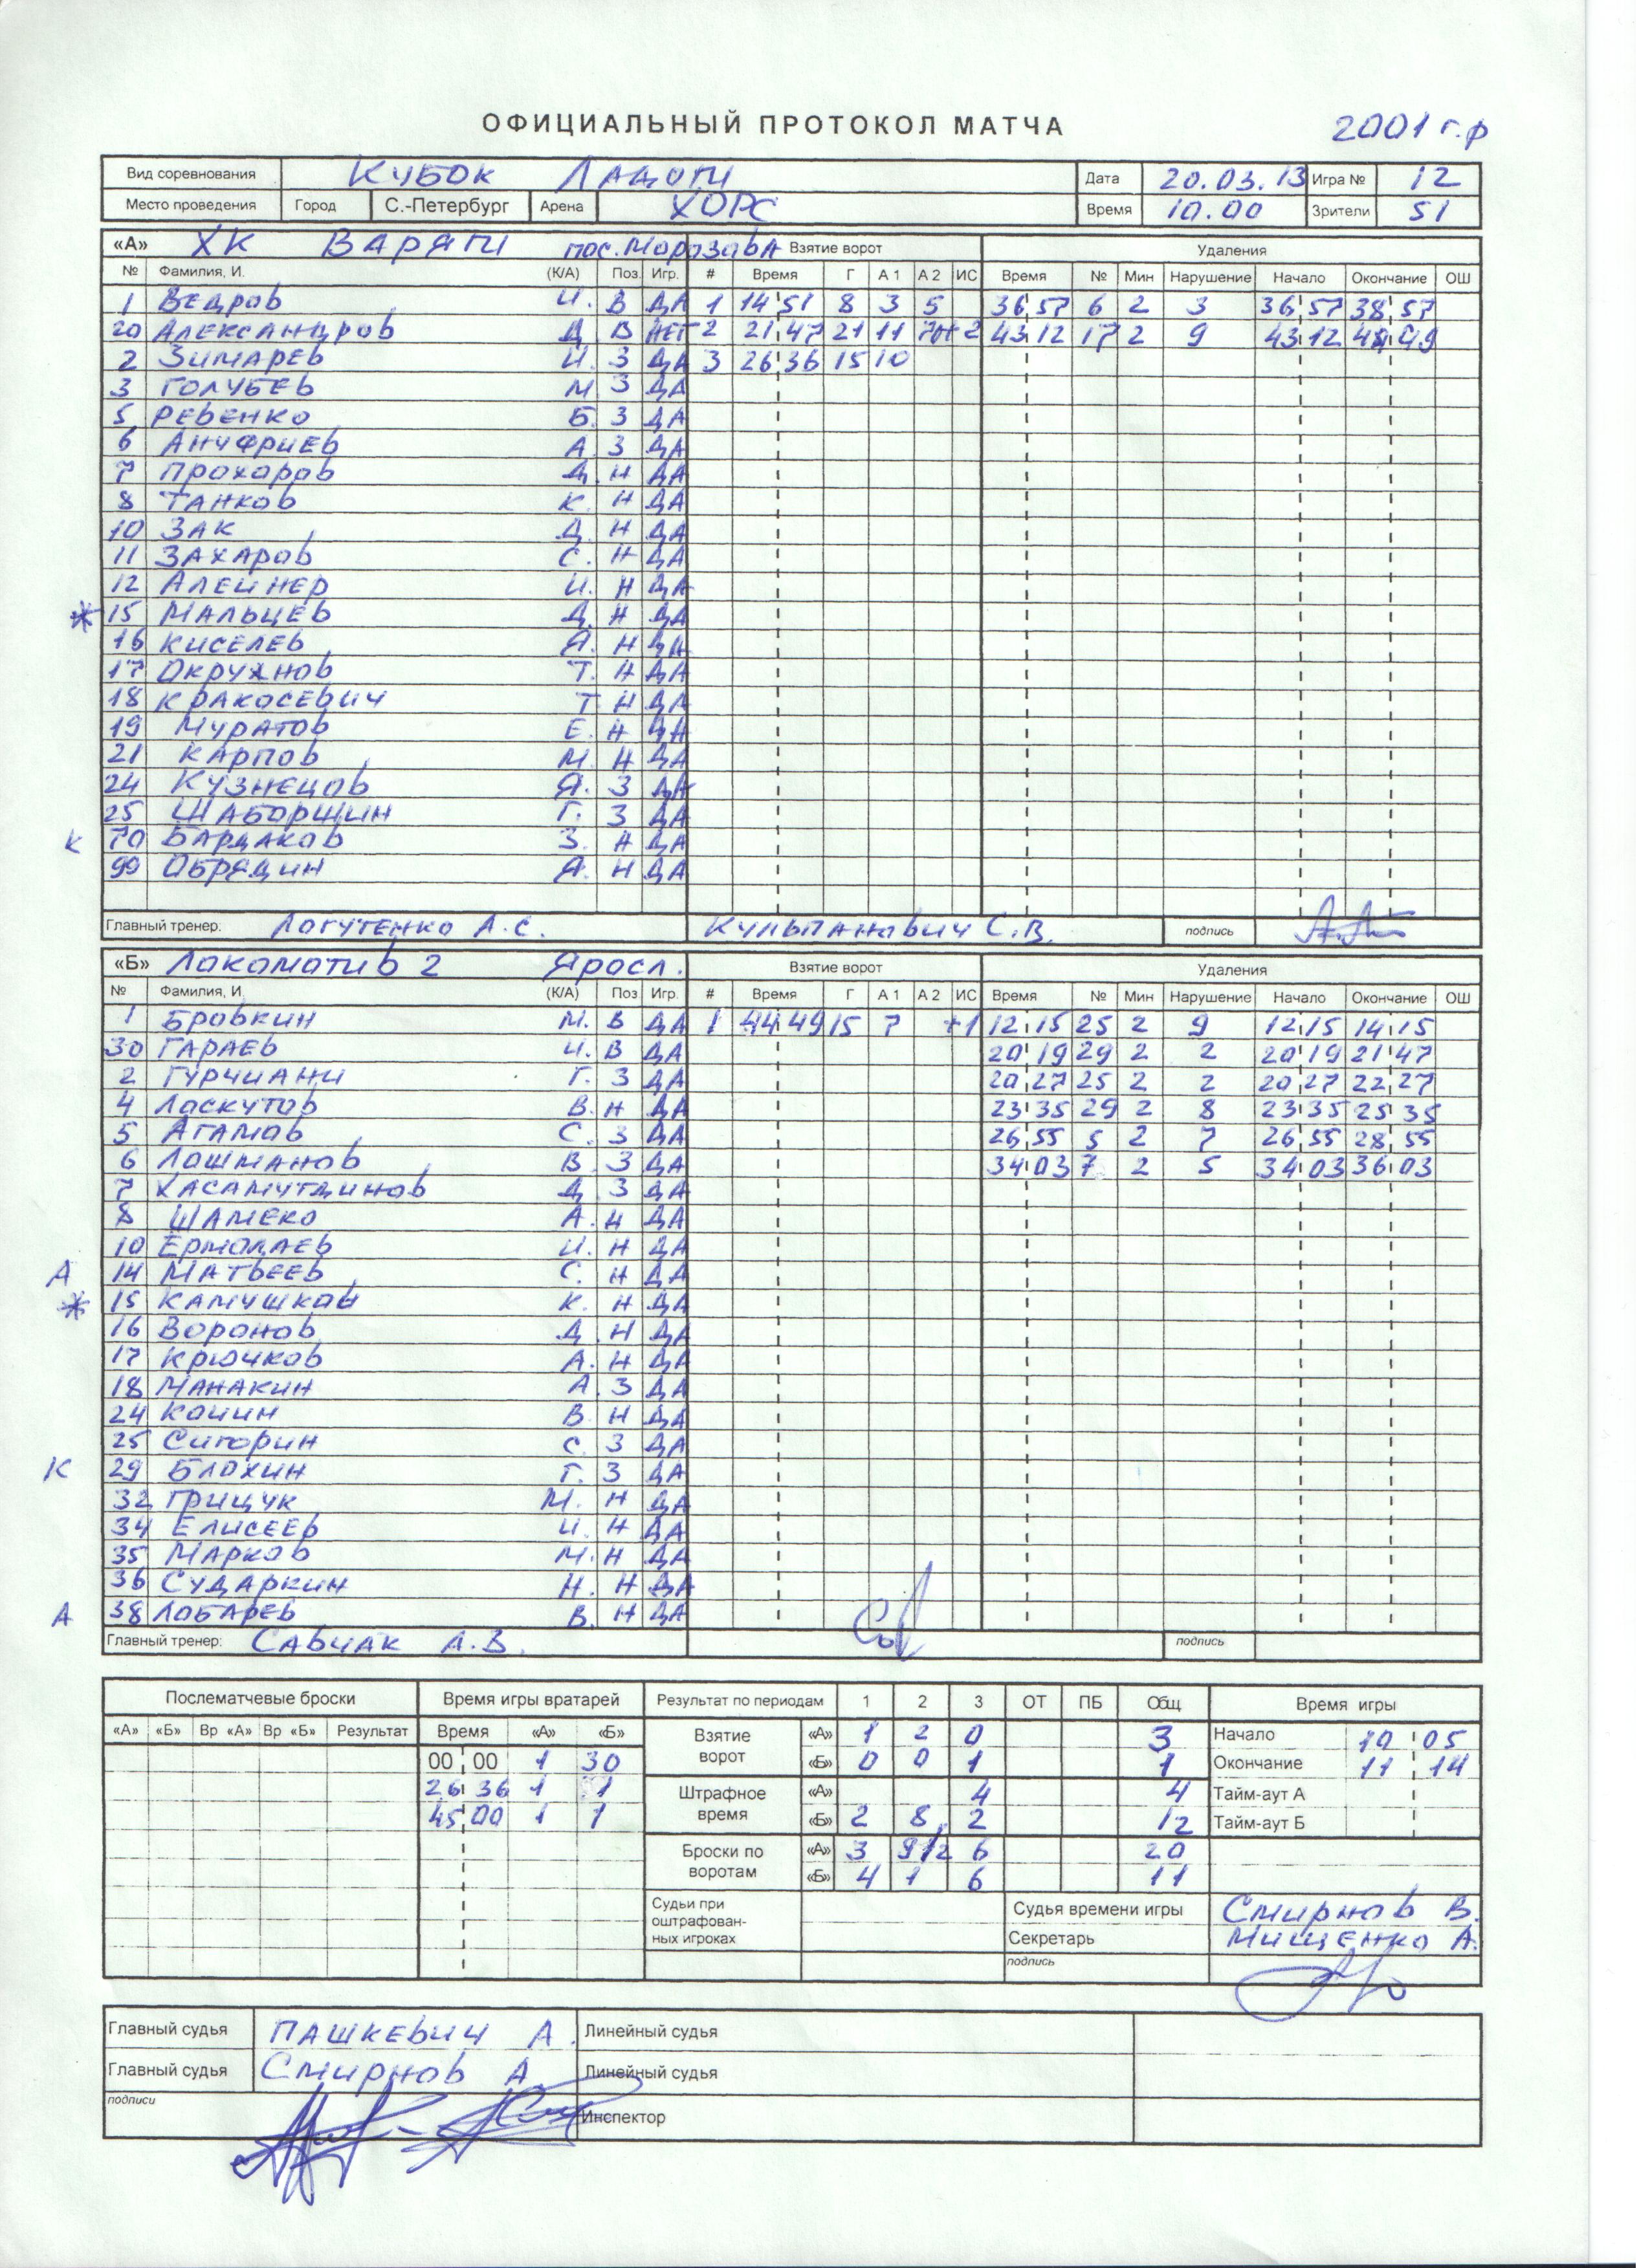 ОФИЦИАЛЬНЫЙ ПРОТОКОЛ МАТЧА 2001 г.р
Вид соревнования КУБОК ЛАДОГИ Дата 20.03.13 Игра № 12
Место проведения Город С.-Петербург Арена ХОРС Время 10.00 Зрители 51
«А» ХК ВАРЯГИ пос. Морозова Взятие ворот Удаления
№ Фамилия, И. (К/А) Поз. Игр. # Время Г А 1 А 2 ИС Время № Мин Нарушение Начало Окончание ОШ
1 Ведров И. В ДА 1 14 51 8 3 5 36 57 6 2 3 36 57 38 57
20 Александров Д. В НЕТ 2 21 47 21 11 70 +2 43 12 17 2 9 43 12 44 49
2 Зимарев И. З ДА 3 26 36 15 10
3 Голубев М З ДА
5 Ревенко Б. З ДА
6 Анчфриев А. З ДА
7 Прохоров Д. Н ДА
8 Танков К. Н ДА
10 Зак Д. Н ДА
11 Захаров С. Н ДА
12 Алейнер И. Н ДА
* 15 Мальцев Д. Н ДА
16 Киселев Я. Н ДА
17 Окружнов Т. Н ДА
18 Кракосевич Т Н ДА
19 Муратов Е. Н ДА
21 Карпов М. Н ДА
24 Кузнецов Я. З ДА
25 Шаборшин Г. З ДА
К 70 Бардаков З. Н ДА
99 Обрядин Я. Н ДА
Главный тренер: Логутенко А.С. Кульпанович С.В. подпись
«Б» Локоматив 2 Яросл. Взятие ворот Удаления
№ Фамилия, И. (К/А) Поз Игр. # Время Г А 1 А 2 ИС Время № Мин Нарушение Начало Окончание ОШ
1 Бровкин М. В ДА 1 44 49 15 7 +1 12 15 25 2 9 12 15 14 15
30 Гараев И. В ДА 20 19 29 2 2 20 19 21 47
2 Гурчиани Г. З ДА 20 27 25 2 2 20 27 22 27
4 Лоскутов В. Н ДА 23 35 29 2 8 23 35 25 35
5 Агамов С. З ДА 26 55 5 2 7 26 55 28 55
6 Лошманов В. З ДА 34 03 7 2 5 34 03 36 03
7 Хасамутдинов Д. З ДА
8 Шамеко А. Н ДА
10 Ермолаев И. Н ДА
А 14 Матвеев С. Н ДА
* 15 Камушков К. Н ДА
16 Воронов Д. Н ДА
17 Крючков А. Н ДА
18 Манакин А. З ДА
24 Кочин В. Н ДА
25 Сигорин С. З ДА
К 29 Блохин Г. З ДА
32 Грищук М. Н ДА
34 Елисеев И. Н ДА
35 Марков М. Н ДА
36 Сударкин Н. Н ДА
А 38 Лобарев В. Н ДА
Главный тренер: Савчак А.В. подпись
Послематчевые броски Время игры вратарей Результат по периодам 1 2 3 ОТ ПБ Общ. Время игры
«А» «Б» Вр «А» Вр «Б» Результат Время «А» «Б» Взятие ворот «А» 1 2 0 3 Начало 10 05
00 00 1 30 «Б» 0 0 1 1 Окончание 11 14
26 36 1 1 Штрафное время «А» 4 4 Тайм-аут А
45 00 1 1 «Б» 2 8 2 12 Тайм-аут Б
Броски по воротам «А» 3 6 20
«Б» 4 1 6 11
Судьи при оштрафован-ных игроках Судья времени игры Смирнов В.
Секретарь Мищенко А.
подпись
Главный судья Пашкевич А. Линейный судья
Главный судья Смирнов А. Линейный судья
подписи Инспектор